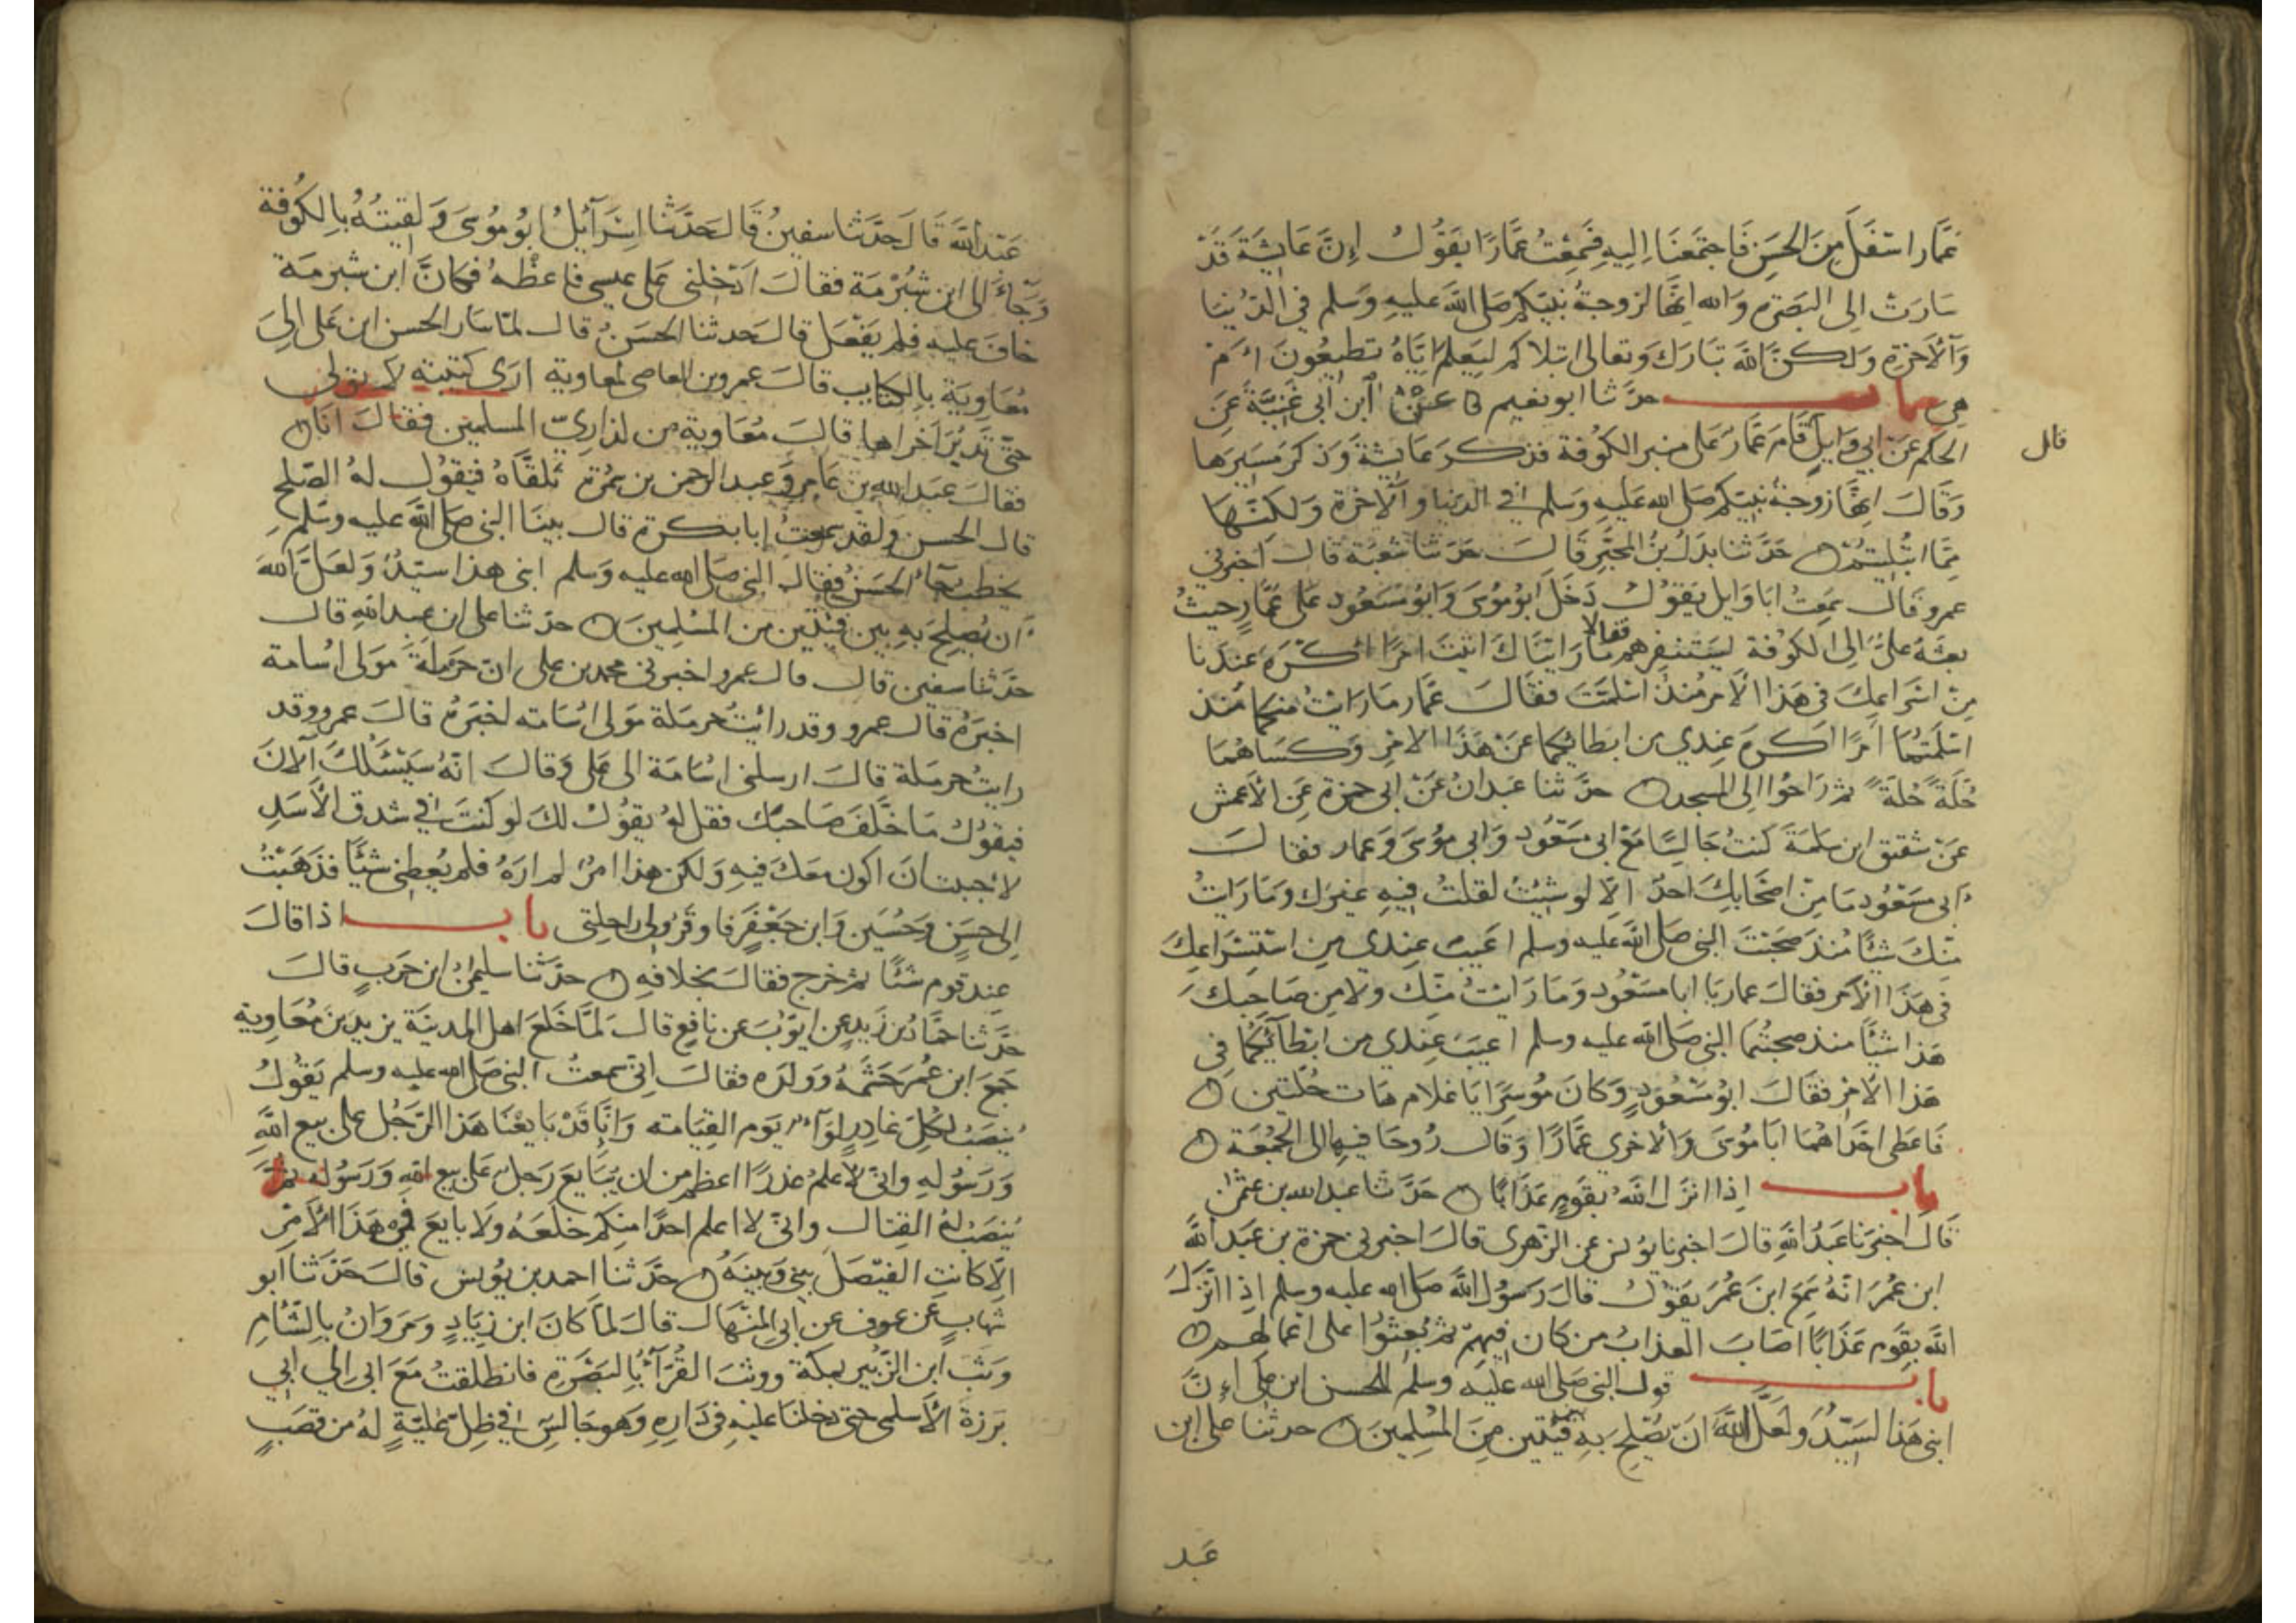 عمَّار اسْفَلَ مِنَ الحَسَنِ فَاجتَمَعنَا اِليهِ فَسَمِعْتُ عَمَّارًا يَقُولُ إِنَّ عَايِشَةَ قَدْ
سَارَتْ الى البَصَرةِ وَالله اِنَّهَا لزوجةُ نبيّكم صَلى اللَّه عليهِ وَسَلم في الدّنيَا
وَالآخِرَةِ وَلكنَّ اللَّهَ تبَارَكَ وَتعالى ابتلاكم ليَعلمَ اِيَّاهُ تطيعُونَ امْ
هي باب حدّثنا ابو نعيم عن ابن ابي غَنِيَّةَ عَن
الحكم عَنْ ابي وَايلٍ قَامَ عَمَّارٌ عَلى منبر الكُوفة فذكرَ عَايشةَ وَذكرَ مَسيرَهَا
قال
وَقَالَ اِنَّهَا زوجةُ نبيّكم صَلى الله عَليهِ وَسَلم في الدنيا والآخرةِ وَلكنَّها
مِمَّا ابتُليتُمْ حَدَّثنا بَدَلُ بنُ المحَبَّرِ قَالَ حَدّثنا شعبَة قَالَ اخبرني
عمرو قَال سَمِعْتُ ابَا وَايل يَقُولُ دَخَلَ ابُو مُوسَى وَابُو مَسْعُود عَلى عَمَّارٍ حيثُ
بعثهُ عَليٌّ الى الكوُفة ليَسْتنفرهم فقالا مَا رَايْنَاكَ اتيتَ امْرًا اكْرَهَ عِنْدَنا
مِنْ اسْرَاعِكَ في هَذا الأمر مُنذُ اسْلمتَ فقَالَ عَمَّار مَا رَايْتُ منكما مُنذ
اسْلَمْتُمَا امْرًا اكرَهَ عِندي من ابطَائِكما عَنْ هَذَا الامْرِ وَكسَاهُمَا
حُلّةً حُلّةً ثم رَاحُوا الى المسجد حدّثنا عَبدانُ عَنْ ابي حمزة عَنِ الأعمش
عَنْ شقيق ابن سَلَمَةَ كنتُ جَالِسًا مَعَ ابي مَسْعُودٍ وَابي مُوسَى وَعمار فقَالَ
ابي مَسْعُود مَا مِنْ اصْحَابِكَ احدٌ الاّ لو شِئْتُ لقلتُ فِيهِ غيرَك وَمَا رَايْتُ
مِنْكَ شيْئًا مُنذ صَحِبْتَ النبي صَلى اللَّه عليه وسلم اعيَبَ عِندي مِن اسْتِسْرَاعِكَ
في هَذَا الأمر فقالَ عمار يَا ابا مَسْعُود وَمَا رَايْتُ مِنْكَ ولا مِن صَاحِبكَ
هَذا شيْئًا منذ صحبتُمَا النبي صَلى اللَّه عليه وسلم اعيَبَ عِندي من ابطَآئِكُمَا في
هَذا الأمْرِ فقَالَ ابُو مَسْعُودٍ وَكانَ مُوسِرًا يَا غلام هَات حُلّتين
فَاعطى احْدَاهُمَا ابَا مُوسَى وَالاخرى عَمَّارًا وَقال رُوحَا فيهِ الى الجُمُعَةِ
باب اِذا انزَلَ اللَّهُ بقومٍ عَذَابًا حَدّثنا عبد الله بن عثمٰن
قَالَ اخبَرنا عَبْدُ اللَّهِ قَالَ اخبرنا يُونس عن الزهرى قَالَ اخبرني حمزة بن عَبد اللَّه
ابن عُمَرَ انّهُ سَمِعَ ابنَ عُمَر يَقُولُ قالَ رَسُول اللَّه صَلى الله عليه وسلم اِذا انْزَلَ
اللَّه بِقَوم عَذَابًا اصَابَ العذابُ من كان فيهم ثم بُعِثُوا على اعمالهم
باب قول النبي صَلى الله عليه وسلم للحسن ابن علي اِنَّ
ابني هَذا لسَيّدٌ وَلعَلَّ اللَّهَ انْ يُصْلِحَ بِهِ بين فئتين مِنَ المُسْلِمِينَ حدثنا علي ابن
عَبد
عَبْد اللَّه قَالَ حَدَّثنا سفيٰنُ قَالَ حَدّثنا اِسْرَآئيلُ ابُو مُوسَى وَلقيتُهُ بِالكُوفة
وَجَاءَ الى ابن شبُرْمَة فقالَ ادْخِلنى عَلى عيسى فاعظْهُ فكانَّ ابن شبرمَة
خافَ عليه فلم يَفْعَل قالَ حَدثنا الحَسَنُ قالَ لمّا سَار الحسن ابن عَلى اِلى
مُعَاوِيَةَ بِالكتايب قالَ عمرو بن العاصى لمعاوية ارَى كتيبة لا تولي
حتّى تدبرَ اخراها قالَ مُعَاوية من لذرَاريّ المسلمين فقالَ انَا
فقالَ عَبد الله بن عَامِرٍ وَعبد الرحمن بن سَمُرة نلقَاهُ فنقُول لهُ الصّلح
قَال الحسن ولقد سَمعتُ ابا بكرة قَال بينَا النبي صَلى اللَّه عليه وسَلم
يخطب جَآءَ الحَسَنُ فقالَ النبي صَلى الله عليه وَسَلم ابني هذا سيّدٌ وَلَعَلَّ اللَّه
اَن يُصلِحَ بِهِ بين فئتين من المُسْلِمينَ حدّثنا على ابن عبد الله قالَ
حدّثنا سفيٰن قالَ قالَ عمرو اخبرنى محمد بن على انّ حَرْمَلَةَ مَولى اسَامة
اخبرَهُ قالَ عمرو وقد رايْتُ حرمَلة مَولى اسَامة اخبرَهُ قالَ عمرو وقد
رايتُ حرمَلة قالَ ارسلنى اسَامَة الى عَلى وَقالَ انّهُ سَيَسْئَلُكَ الآنَ
فيقُولُ مَا خَلَّفَ صَاحبَك فقل لهُ يقوُلُ لكَ لو كنتَ في شدق الأسَدِ
لأحببتُ انَ اكون معَكَ فيهِ وَلكن هذا امْرٌ لم ارَهُ فلم يُعطِنى شيئًا فذَهَبْتُ
اِلى حسَنٍ وَحُسَين وَابن جَعْفَرٍ فاوقرُوا لى رَاحِلتى باب اذا قالَ
عِند قوم شيْئًا ثم خرج فقالَ بخلافه حدّثنا سليمٰنُ ابن حَربٍ قالَ
حَدّثنا حمّادُ بن زَيدٍ عن ايّوبَ عن نافعٍ قالَ لمّا خَلعَ اهل المدينَة يزيد بن مُعَاوية
جَمَعَ ابن عُمَر حَشمَهُ وَوَلده فقالَ اِنّى سمعتُ النبي صَلى الله عليه وسلم يَقولُ
يُنصَبُ لكلِّ غادرٍ لِوَآءٌ يَوم القِيَامة وَاِنَّا قَدْ بَايَعْنَا هَذا الرّجُل على بيع اللَّهِ
وَرَسُولهِ وانّى لاَ اعلمُ غدرًا اعظم من ان يُبَايَعَ رَجلٌ عَلى بيع اللَّهِ وَرَسُوله ثمَّ
يُنصَبُ لهُ القِتالُ وانّى لا اعلم احدًا منكم خَلعَهُ وَلا بايع في هَذا الأمْرِ
الاّ كانتِ الفيْصَلَ بيني وَبينَهُ حدّثنا احمد بن يُونس قالَ حَدّثنا ابو
شهابٍ عَن عوف عن ابي المنهَال قالَ لمّا كانَ ابن زِيَادٍ وَمَروَانُ بالشَّامِ
وَثبَ ابن الزبير بمكَّة ووثبَ القُرَّآءُ بِالبَصْرَةِ فانطلقتُ مَعَ ابى الى ابي
بَرزةَ الأسْلمى حتى دخلنَا عليهِ في دَارِهِ وَهو جَالسٌ في ظِلّ عليّةٍ لهُ من قصَبٍ